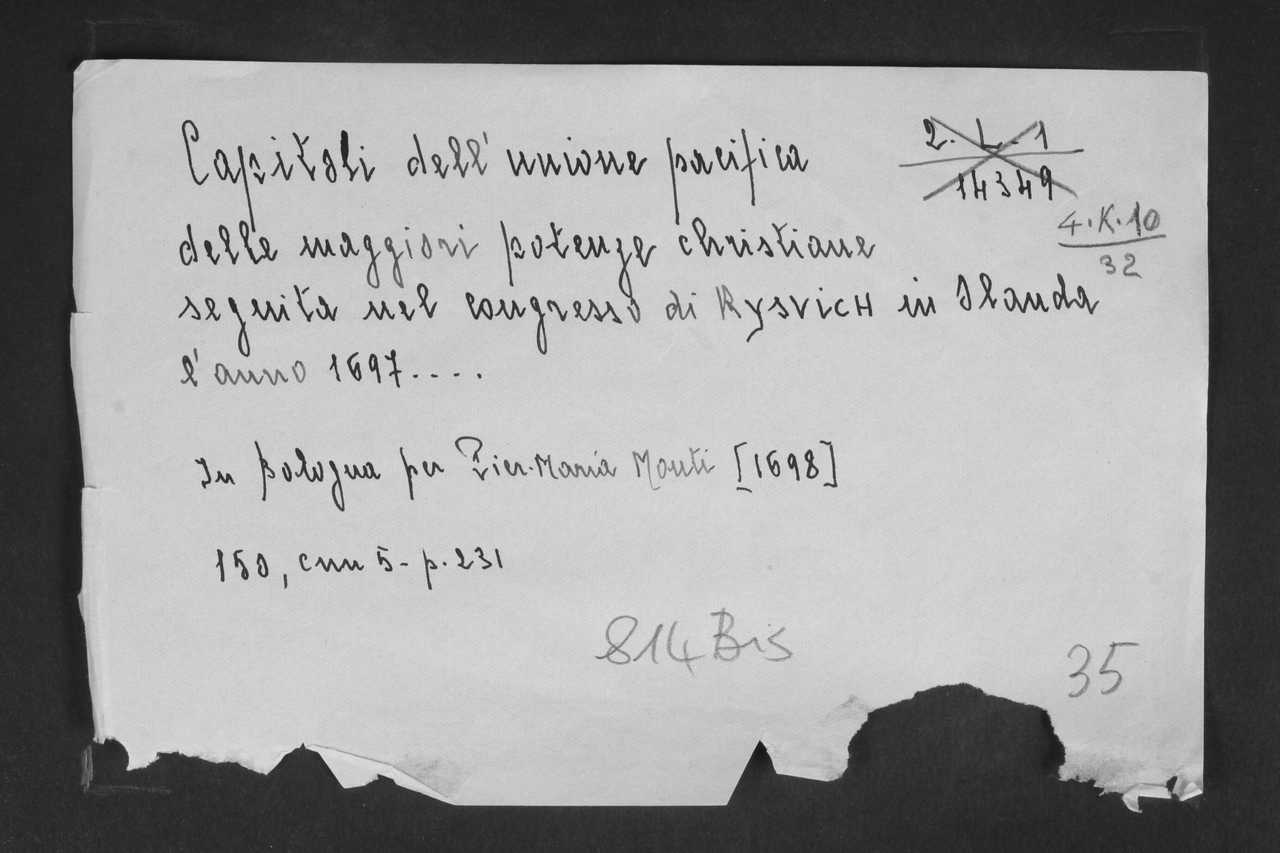 Capitoli dell' unione pacifica
2. L. 1
14349
4.K.10
32
delle maggiori potenze christiane
seguita nel congresso di Rysvich in Olanda
l'anno 1697....
In Bologna per Pier-Maria Monti [1698]
150, cnn 5 - p. 231
814 Bis
35